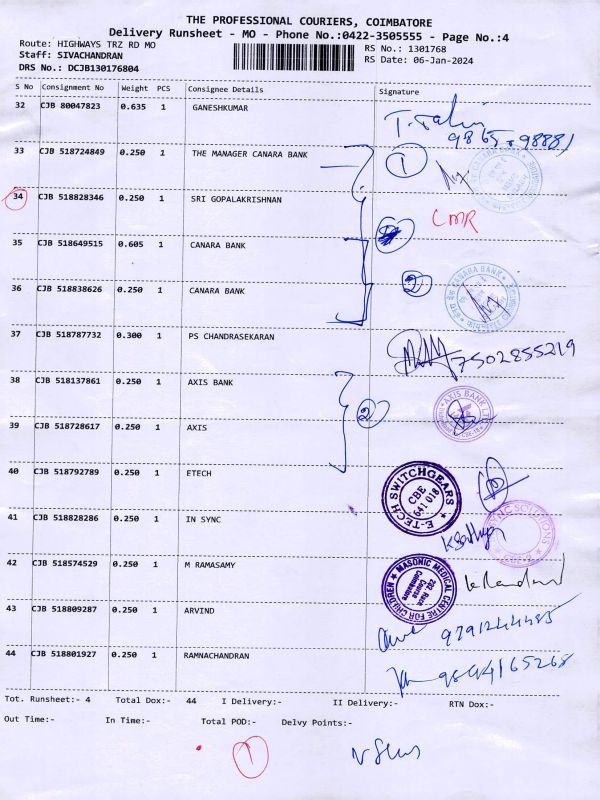 THE PROFESSIONAL COURIERS, COIMBATORE
Delivery Runsheet - MO - Phone No.:0422-3505555 - Page No.:4
Route: HIGHWAYS TRZ RD MO
RS No.: 1301768
Staff: SIVACHANDRAN
RS Date: 06-Jan-2024
DRS No.: DCJB130176804
S No Consignment No Weight PCS Consignee Details Signature
32 CJB 80047823 0.635 1 GANESHKUMAR
33 CJB 518724849 0.250 1 THE MANAGER CANARA BANK 1
34 CJB 518828346 0.250 1 SRI GOPALAKRISHNAN CMR
35 CJB 518649515 0.605 1 CANARA BANK
36 CJB 518838626 0.250 1 CANARA BANK 2 CANARA BANK
37 CJB 518787732 0.300 1 PS CHANDRASEKARAN 7502855219
38 CJB 518137861 0.250 1 AXIS BANK AXIS BANK LTD
39 CJB 518728617 0.250 1 AXIS
40 CJB 518792789 0.250 1 ETECH E-TECH SWITCHGEARS CBE 641 018
41 CJB 518828286 0.250 1 IN SYNC
42 CJB 518574529 0.250 1 M RAMASAMY MASONIC MEDICAL CENTRE FOR CHILDREN 232, Race Course Coimbatore
43 CJB 518809287 0.250 1 ARVIND
44 CJB 518801927 0.250 1 RAMNACHANDRAN
Tot. Runsheet:- 4 Total Dox:- 44 I Delivery:- II Delivery:- RTN Dox:-
Out Time:- In Time:- Total POD:- Delvy Points:-
1